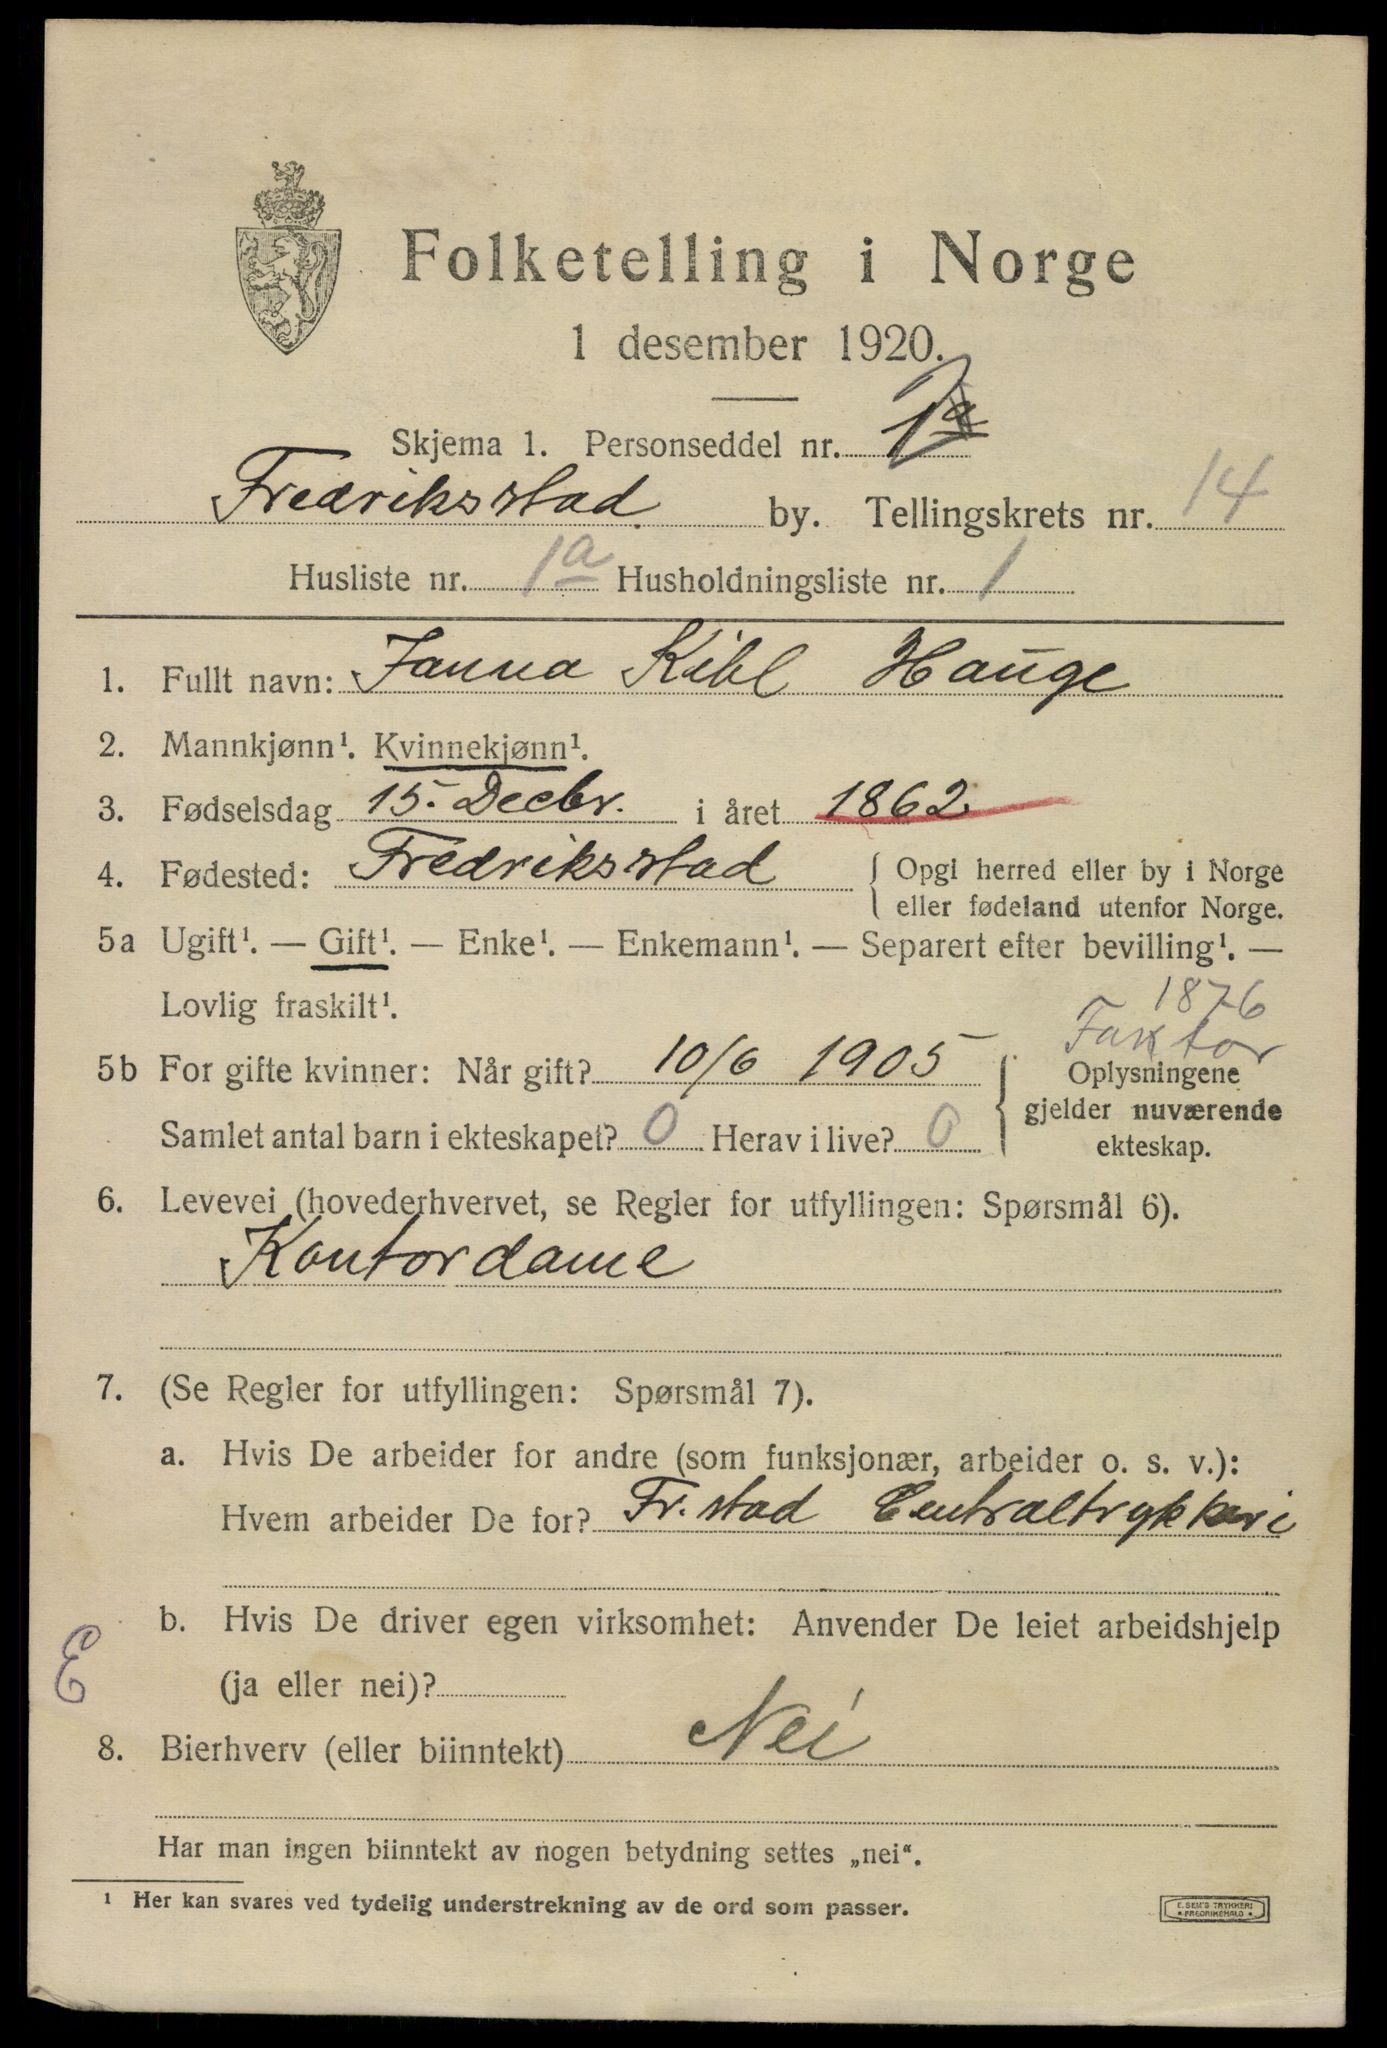 Folketelling i Norge
1 desember 1920.
Skjema 1. Personseddel nr.
Fredriksstad by. Tellingskrets nr. 14
Husliste nr. 1a Husholdningsliste nr. 1
1. Fullt navn: Janna Kihl Hauge
2. Mannkjønn¹. Kvinnekjønn¹.
3. Fødselsdag 15. Decbr. i året 1862.
4. Fødested: Fredriksstad { Opgi herred eller by i Norge
eller fødeland utenfor Norge.
5a Ugift¹. — Gift¹. — Enke¹. — Enkemann¹. — Separert efter bevilling¹. —
Lovlig fraskilt¹.
1876
Faktor
5b For gifte kvinner: Når gift? 10/6 1905 { Oplysningene
gjelder nuværende
ekteskap.
Samlet antal barn i ekteskapet? 0 Herav i live? 0
6. Levevei (hovederhvervet, se Regler for utfyllingen: Spørsmål 6).
Kontordame
7. (Se Regler for utfyllingen: Spørsmål 7).
a. Hvis De arbeider for andre (som funksjonær, arbeider o. s. v.):
Hvem arbeider De for? Fr.stad Centraltrykkeri
b. Hvis De driver egen virksomhet: Anvender De leiet arbeidshjelp
(ja eller nei)?
E
8. Bierhverv (eller biinntekt) Nei
Har man ingen biinntekt av nogen betydning settes „nei“.
¹ Her kan svares ved tydelig understrekning av de ord som passer.
E. SEM'S TRYKKERI
FREDRIKSHALD